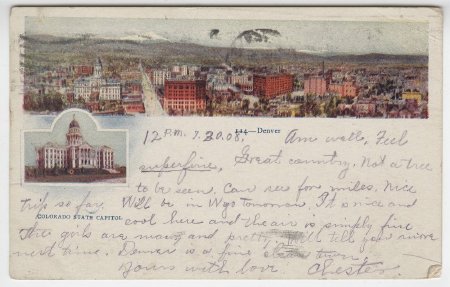 12 P.M. 7.30.08.
124—Denver
Am well. Feel
superfine, Great country. Not a tree
to be seen, Can see for miles. Nice
trip so far. Will be in Wyo tomorrow. It is nice and
COLORADO STATE CAPITOL
cool here and the air is simply fine
The girls are many and pretty. Will tell you more
next time. Denver is a fine clean town.
Yours with love Chester